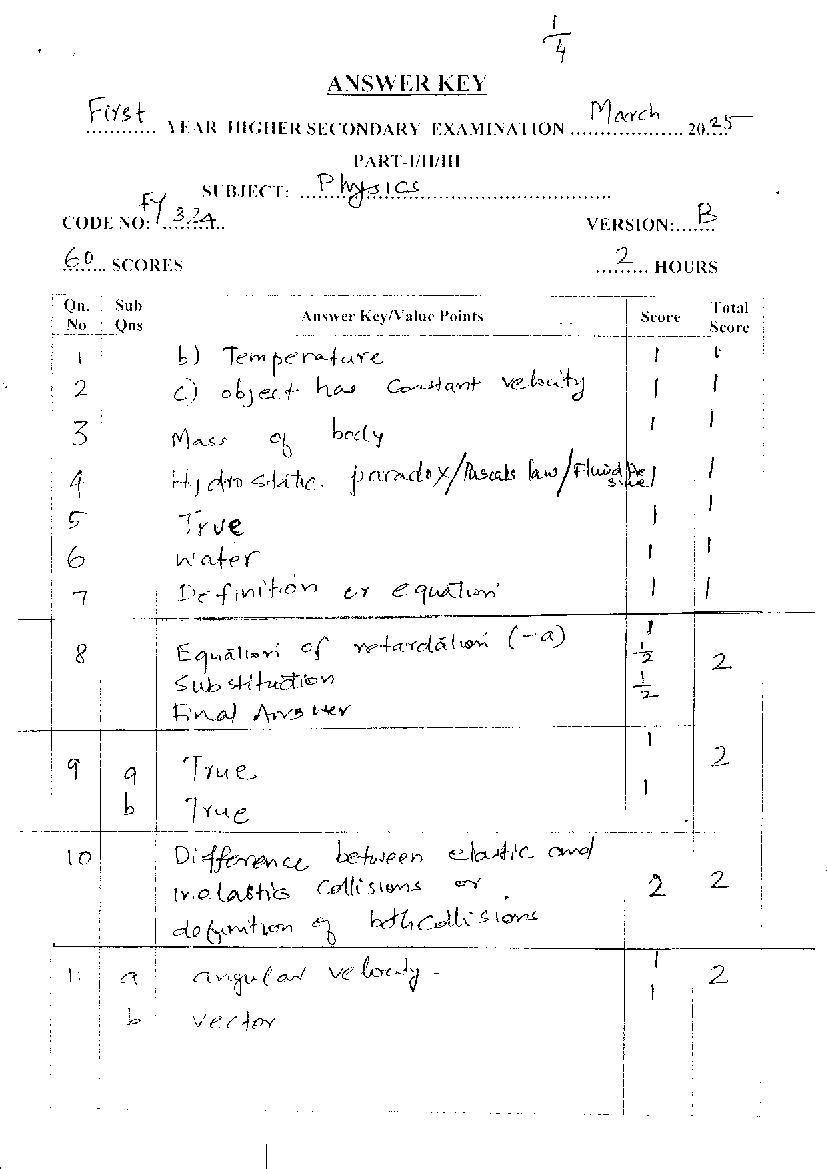 1/4
ANSWER KEY
First YEAR HIGHER SECONDARY EXAMINATION March 2025
PART-I/II/III
SUBJECT: Physics
CODE NO: FY 324 VERSION: B
60 SCORES 2 HOURS
Qn. No Sub Qns Answer Key/Value Points Score Total Score
1 b) Temperature 1 1
2 c) object has constant velocity 1 1
3 Mass of body 1 1
4 Hydrostatic paradox/Pascals law/Fluid 1 1
5 True 1 1
6 Water 1 1
7 Definition or equation 1 1
8 Equation of retardation (-a) 1 2
Substitution 1/2
Final Answer 1/2
9 a True 1 2
b True 1
10 Difference between elastic and
inelastic Collisions or 2 2
definition of both collisions
11 a angular velocity - 1 2
b vector 1